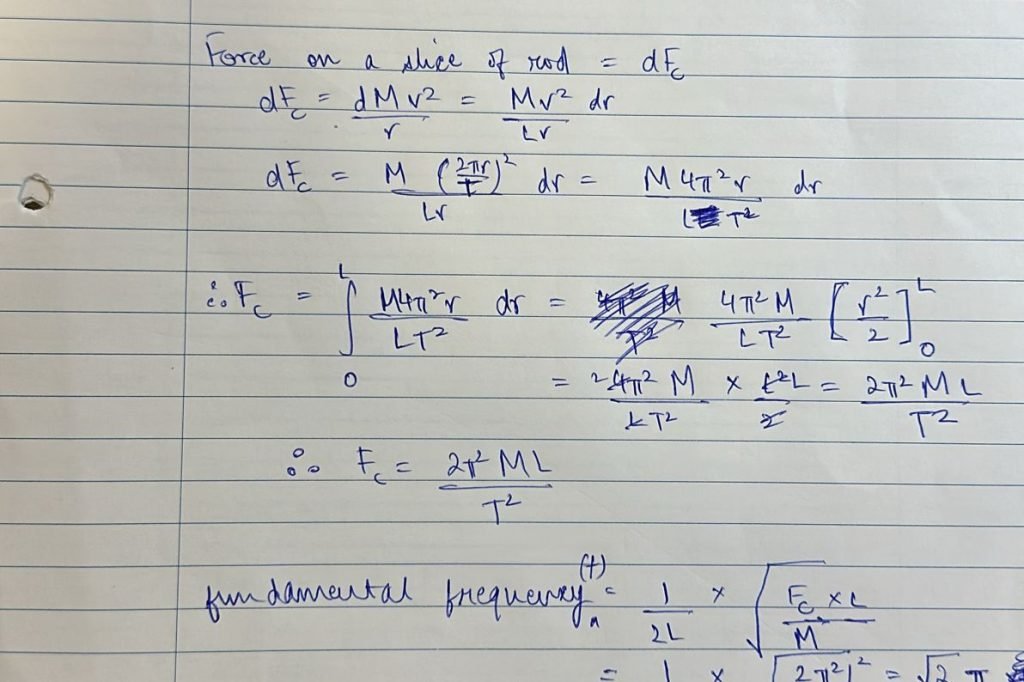 Force on a slice of rod = dF_c
dF_c = dM v²/r = Mv²/Lr dr
dF_c = M/Lr (2πr/T)² dr = M4π²r/LT² dr
∴ F_c = ∫₀ᴸ M4π²r/LT² dr = 4π²M/LT² [r²/2]₀ᴸ
= 2 4π²M/LT² × L²L/2 = 2π²ML/T²
∴ F_c = 2π²ML/T²
fundamental frequency (f) = 1/2L × √(F_c × L/M)
= 1 × √2π²L² = √2 π